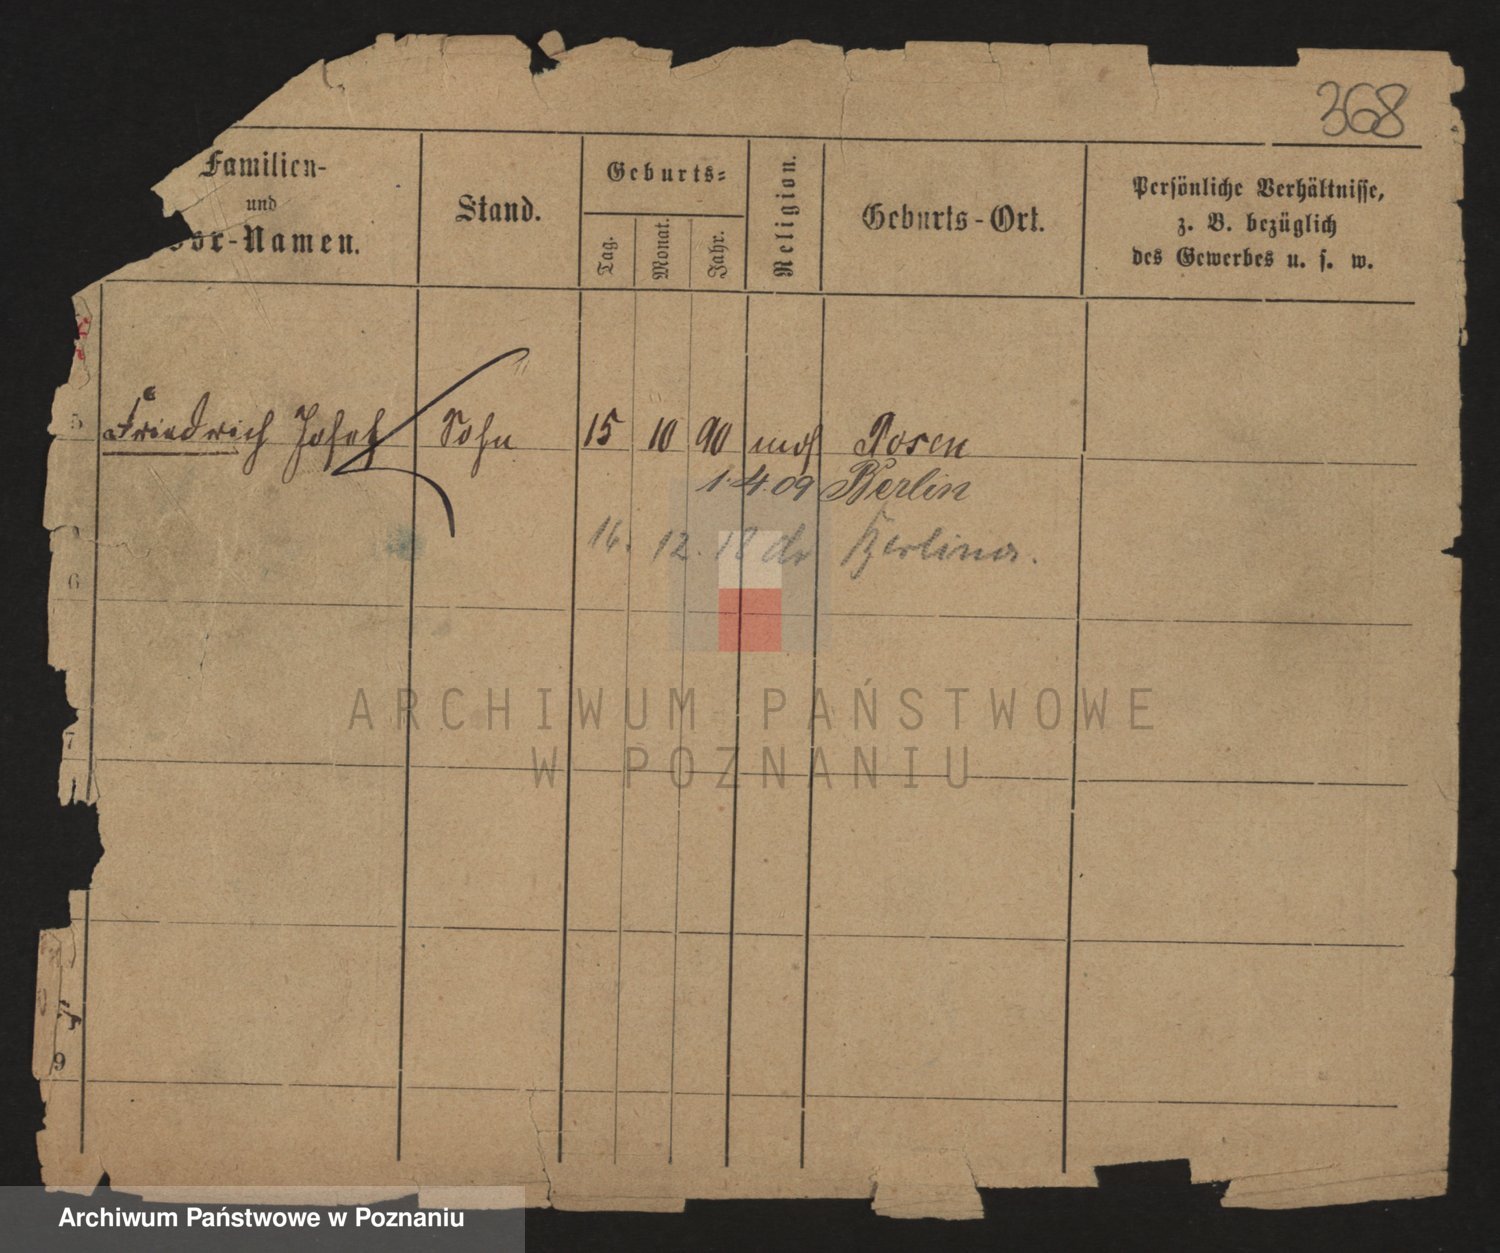 368
Familien-
und
Vor-Namen.
Stand.
Geburts-
Tag.
Monat.
Jahr.
Religion.
Geburts-Ort.
Persönliche Verhältnisse,
z. B. bezüglich
des Gewerbes u. s. w.
5 Friedrich Josef Sohn 15 10 90 mos Posen
1.4.09 Berlin
16. 12. 18
6
7
9
ARCHIWUM PAŃSTWOWE
W POZNANIU
Archiwum Państwowe w Poznaniu